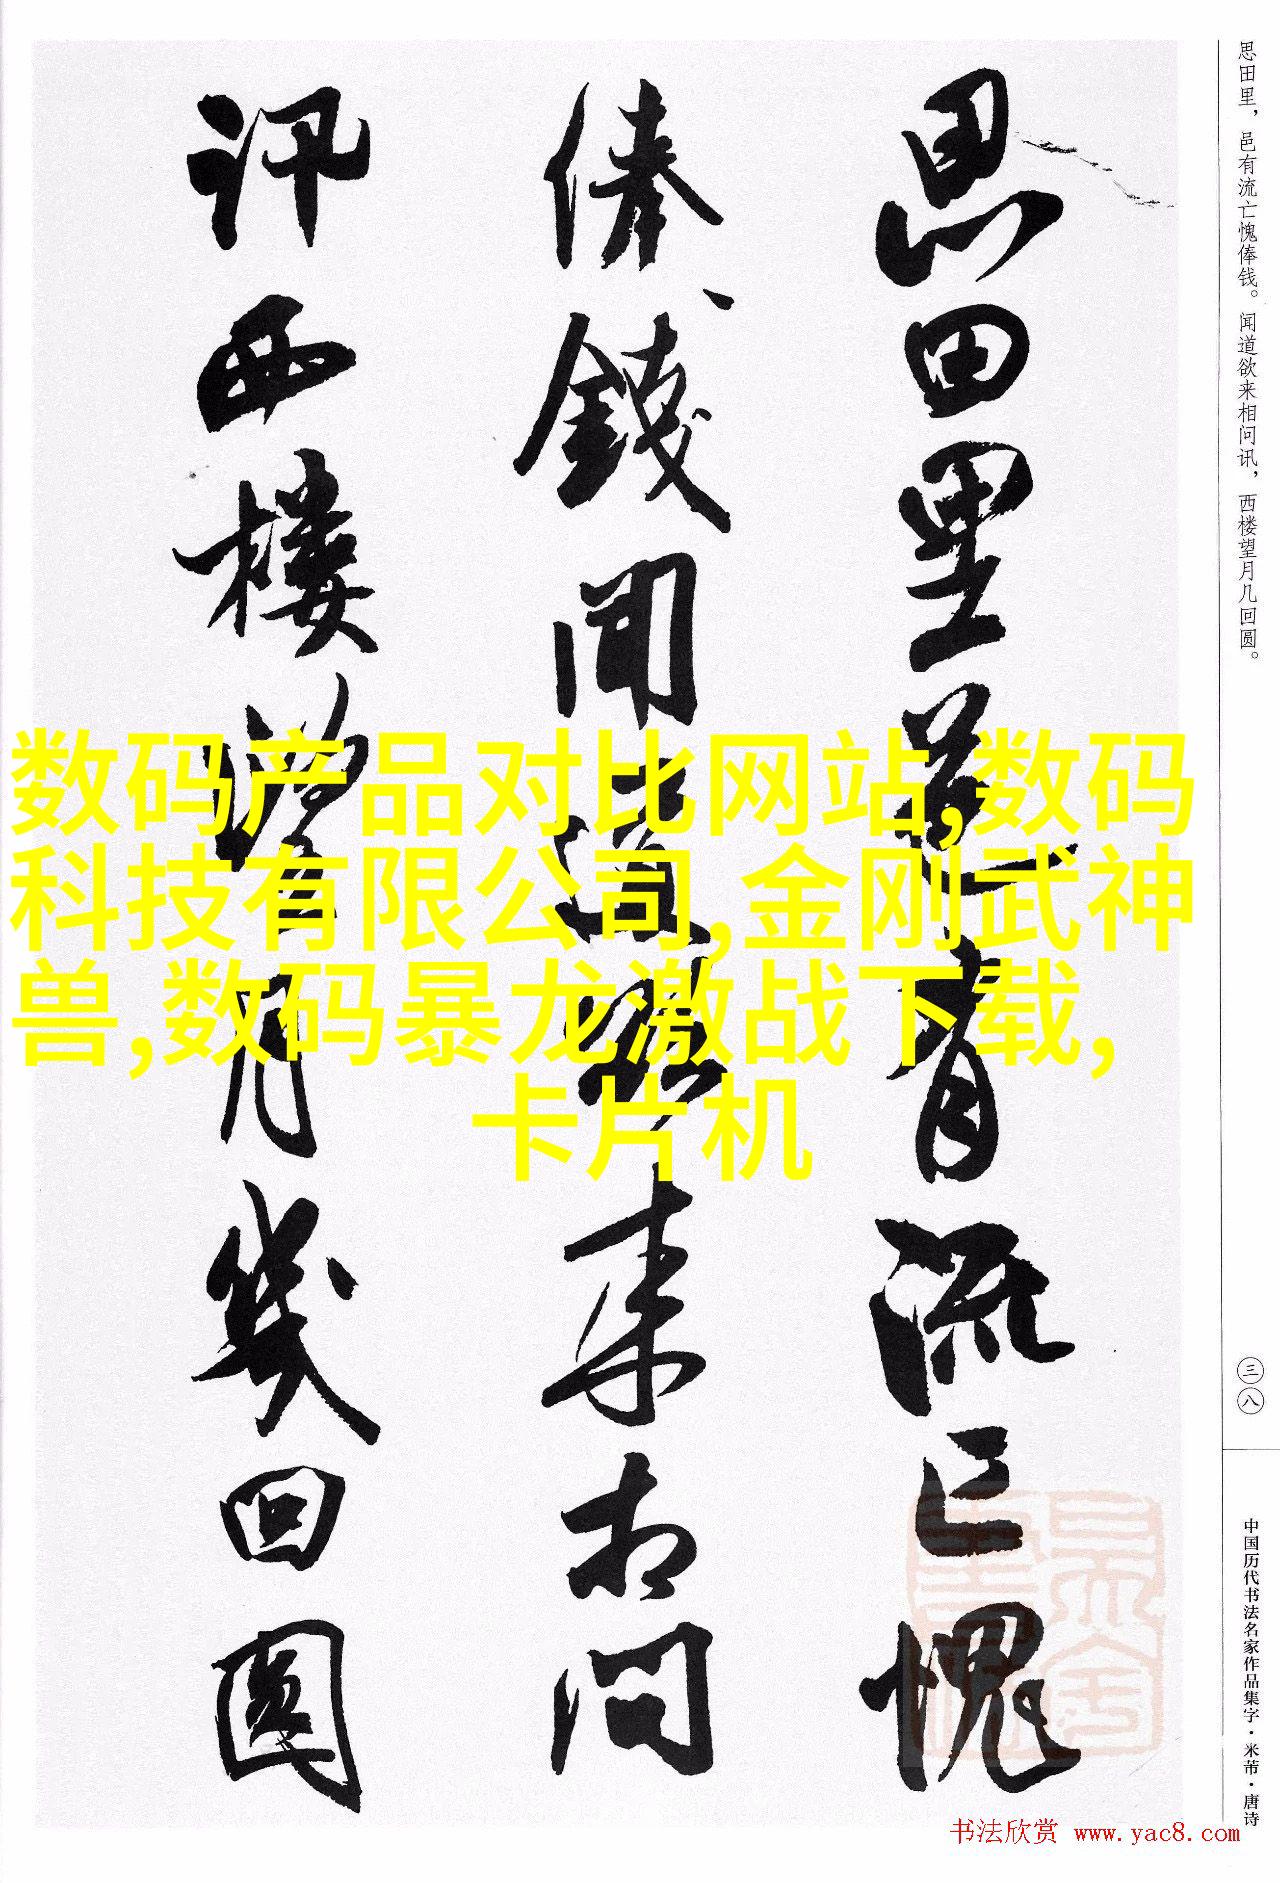 思田里邑有流亡愧
俸钱闻道欲来相问
讯西楼望月几回圆
思田里，邑有流亡愧俸钱。闻道欲来相问讯，西楼望月几回圆。
三八
中国历代书法名家作品集字·米芾·唐诗
数码产品对比网站,数码
科技有限公司,金刚武神
兽,数码暴龙激战下载,
卡片机
书法欣赏 www.yac8.com